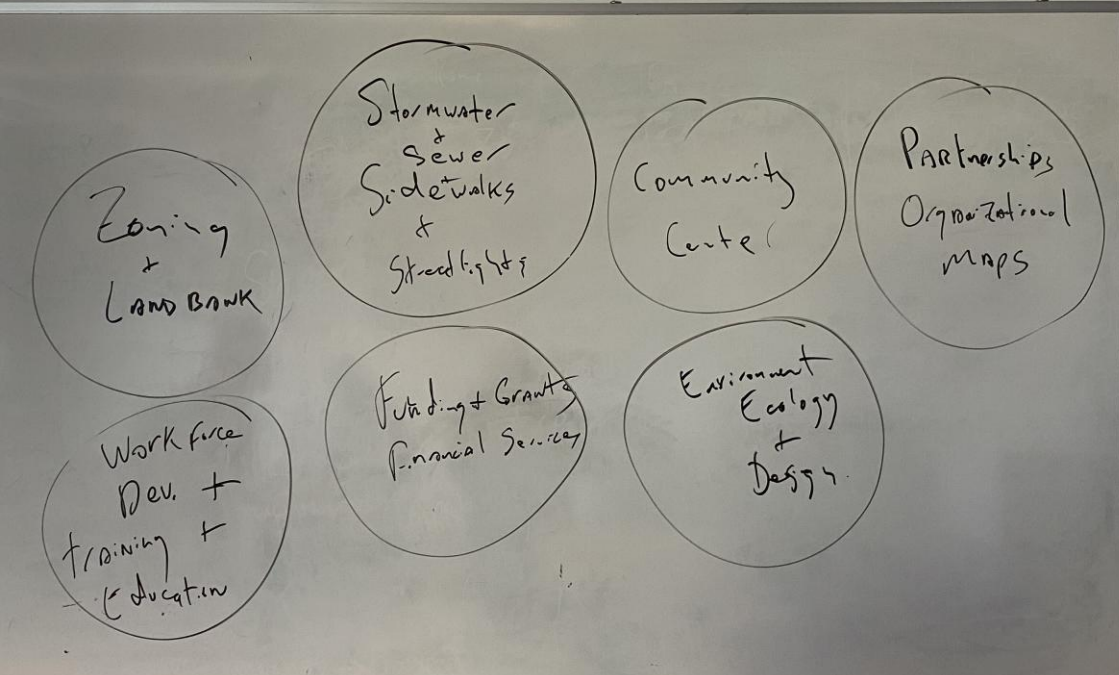 Zoning
+
LAND BANK
Stormwater
+
Sewer
+
Sidewalks
+
Streetlights
Community
Center
PARtnerships
Organizational
MAPS
Workforce
Dev. +
training +
Education
Funding + Grants
Financial Services
Environment
Ecology
+
Design.